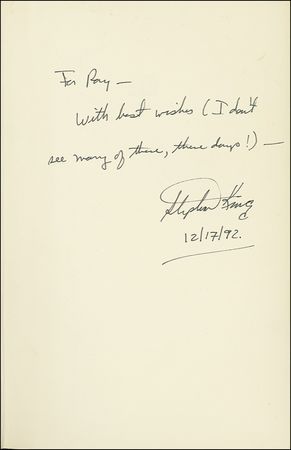 For Ray —
With best wishes (I don't
see many of these, these days!) —
Stephen King
12/17/92.